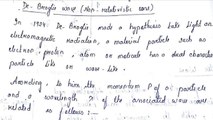 De-Broglie wave (Non-relativistic case)
In 1924, De Broglie made a hypothesis that light an
electromagnetic radiation, a material particle such as
electron, proton, atom or molecule has a dual character
particle like or wave like.
According to him the momentum P of a particle
and a wavelength λ of the associated wave are
related as follows:-